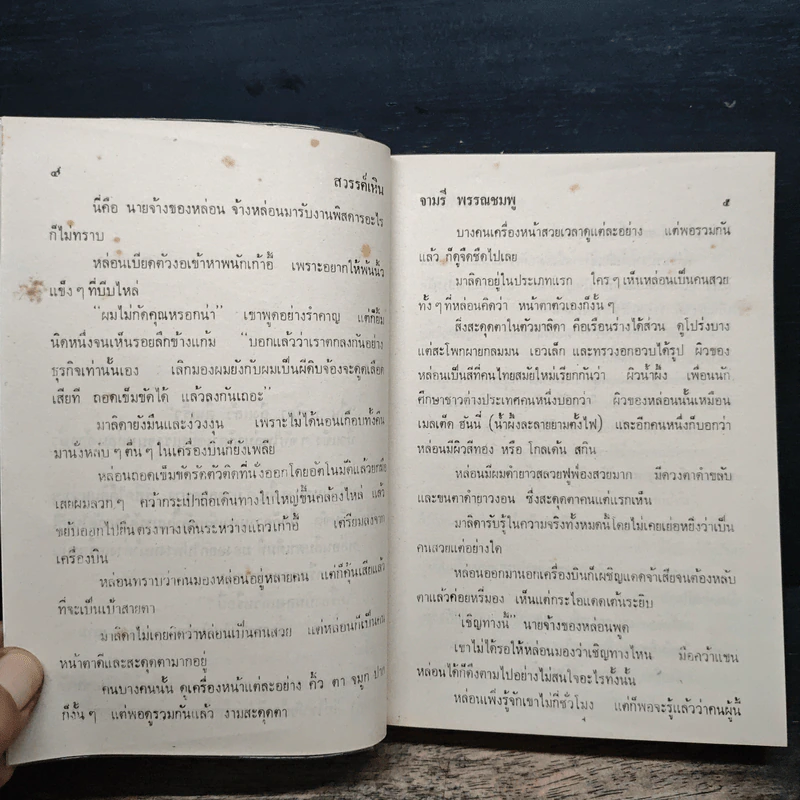 ๔
สวรรค์เหิน
นี่คือ นายจ้างของหล่อน จ้างหล่อนมารับงานพิสดารอะไร
ก็ไม่ทราบ
หล่อนเบียดตัวงอเข้าหาพนักเก้าอี้ เพราะอยากให้พ้นนิ้ว
แข็งๆ ที่บีบไหล่
"ผมไม่กัดคุณหรอกน่า" เขาพูดอย่างรำคาญ แต่ก็ยิ้ม
นิดหนึ่งจนเห็นรอยลึกข้างแก้ม "บอกแล้วว่าเราตกลงกันอย่าง
ธุรกิจเท่านั้นเอง เลิกมองผมยังกับผมเป็นผีดิบจ้องจะดูดเลือด
เสียที ถอดเข็มขัดได้ แล้วลงกันเถอะ"
มาลิดายังมึนและง่วงงุน เพราะไม่ได้นอนเกือบทั้งคืน
มานั่งหลับๆ ตื่นๆ ในเครื่องบินก็ยังเพลีย
หล่อนถอดเข็มขัดรัดตัวติดที่นั่งออกโดยอัตโนมัติแล้วยกมือ
เสยผมลวกๆ คว้ากระเป๋าถือเดินทางใบใหญ่ขึ้นคล้องไหล่ แล้ว
ขยับออกไปยืนตรงทางเดินระหว่างแถวเก้าอี้ เตรียมลงจาก
เครื่องบิน
หล่อนทราบว่าคนมองหล่อนอยู่หลายคน แต่ก็ค้นเสียแล้ว
ที่จะเป็นเป้าสายตา
มาลิดาไม่เคยคิดว่าหล่อนเป็นคนสวย แต่หล่อนก็เป็นคน
หน้าตาดีและสะดุดตามากอยู่
คนบางคนนั้น ดูเครื่องหน้าแต่ละอย่าง คิ้ว ตา จมูก ปาก
ก็งั้นๆ แต่พอดูรวมกันแล้ว งามสะดุดตา
จามรี พรรณชมพู
๕
บางคนเครื่องหน้าสวยเวลาดูแต่ละอย่าง แต่พอรวมกัน
แล้ว ก็ดูจืดชืดไปเลย
มาลิดาอยู่ในประเภทแรก ใครๆ เห็นหล่อนเป็นคนสวย
ทั้งๆ ที่หล่อนคิดว่า หน้าตาตัวเองก็งั้นๆ
สิ่งสะดุดตาในตัวมาลิดา คือเรือนร่างได้ส่วน ดูโปร่งบาง
แต่สะโพกผายกลมมน เอวเล็ก และทรวงอกอวบได้รูป ผิวของ
หล่อนเป็นสีที่คนไทยสมัยใหม่เรียกกันว่า ผิวน้ำผึ้ง เพื่อนนัก
ศึกษาชาวต่างประเทศคนหนึ่งบอกว่า ผิวของหล่อนนั้นเหมือน
เมลเต็ด ฮันนี่ (น้ำผึ้งละลายยามตั้งไฟ) และอีกคนหนึ่งก็บอกว่า
หล่อนมีผิวสีทอง หรือ โกลเด้น สกิน
หล่อนมีผมดำยาวสลวยฟูฟ่องสวยมาก มีดวงตาดำขลับ
และขนตาดำยาวงอน ซึ่งสะดุดตาคนแต่แรกเห็น
มาลิดารับรู้ในความจริงทั้งหมดนี้โดยไม่เคยเย่อหยิ่งว่าเป็น
คนสวยแต่อย่างใด
หล่อนออกมานอกเครื่องบินก็เผชิญแดดจ้าเสียจนต้องหลับ
ตาแล้วค่อยหรี่มอง เห็นแต่กระไอแดดเต้นระยิบ
"เชิญทางนี้" นายจ้างของหล่อนพูด
เขาไม่ได้รอให้หล่อนมองว่าเชิญทางไหน มือคว้าแขน
หล่อนได้ก็ดึงตามไปอย่างไม่สนใจอะไรทั้งนั้น
หล่อนเพิ่งรู้จักเขาไม่กี่ชั่วโมง แต่ก็พอจะรู้แล้วว่าคนผู้นี้